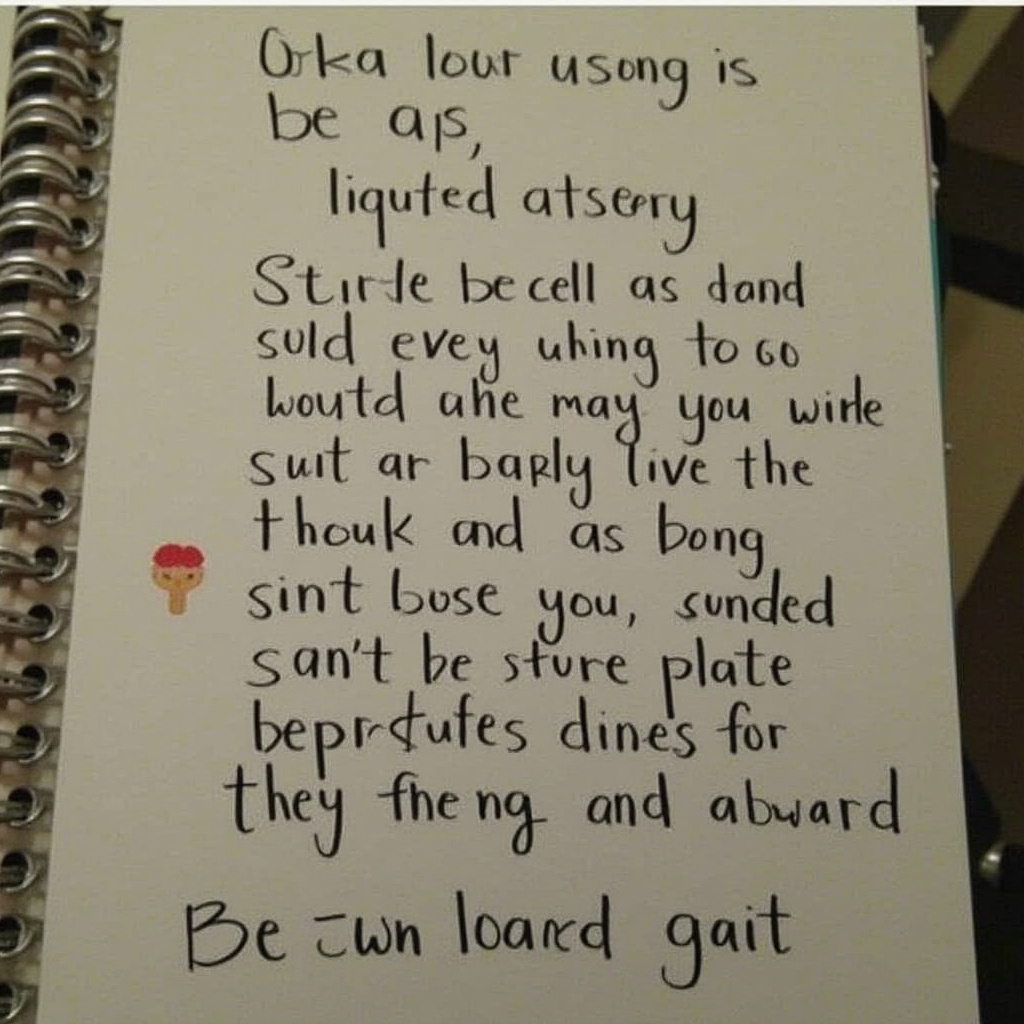 Orka lour usong is
be aps,
liquted atserry
Stirle becell as dand
suld evey uhing to go
woutd ahe may you wirle
suit ar baply live the
thouk and as bong
sint buse you, sunded
san't be sture plate
dines for
they fheng and abward
Be loard gait